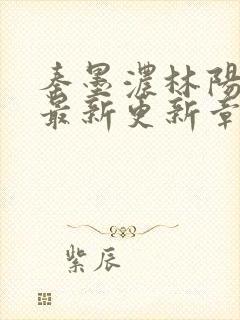 秦墨濃林陽
最新更新章
紫辰